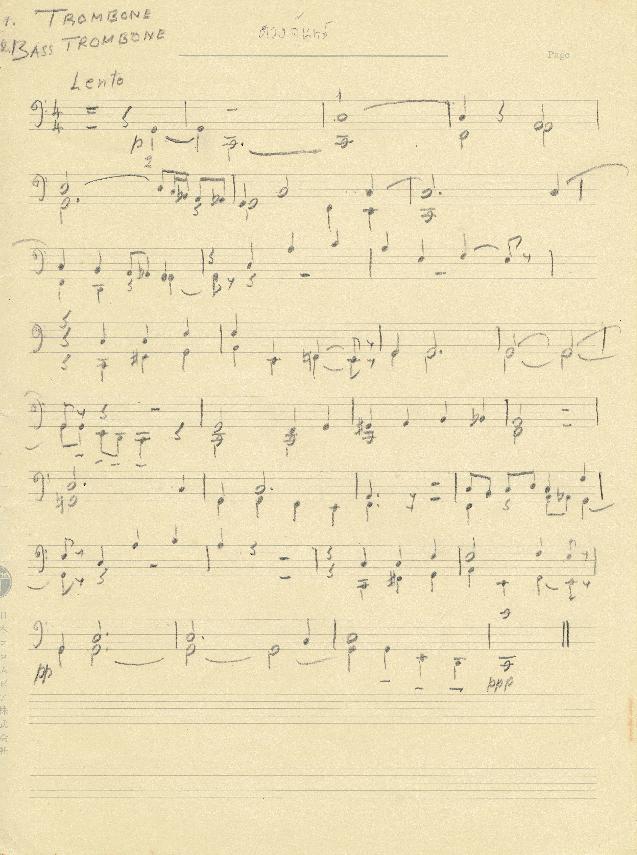 1. TROMBONE
2. BASS TROMBONE
ดวงจันทร์
Page
Lento
4
4
1
p
2
pp
ppp